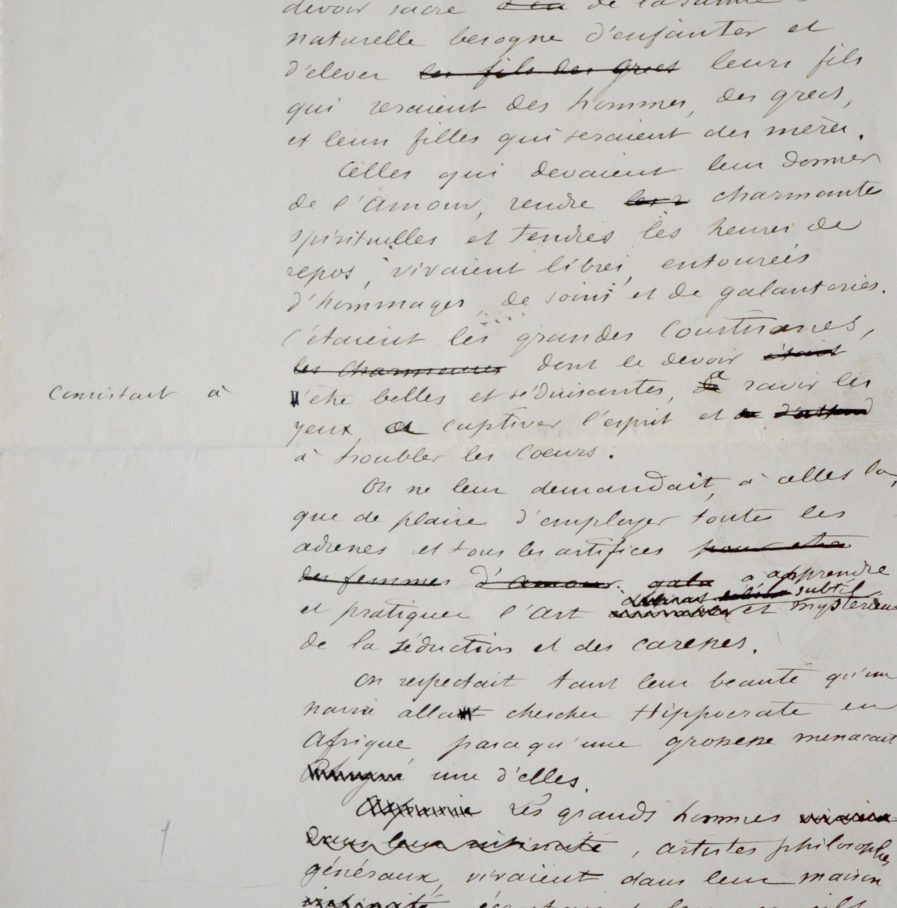 devoir sacré de la sainte
naturelle besogne d'enfanter et
d'élever les fils des grecs leurs fils
qui seraient des hommes, des grecs,
et leurs filles qui seraient des mères.
Celles qui devaient leur donner
de l'Amour, rendre charmantes
spirituelles et tendres les heures de
repos, vivaient libres, entourées
d'hommages, de soins et de galanteries.
C'étaient les grandes Courtisanes,
les charmeuses dont le devoir était
Consistait à
être belles et séduisantes, à ravir les
yeux, à captiver l'esprit et
à troubler les coeurs.
On ne leur demandait, à celles là,
que de plaire d'employer toutes les
adresses et tous les artifices pour être
des femmes d'amour. à apprendre
subtil
et pratiquer l'art et mystérieux
de la séduction et des caresses.
On respectait tant leur beauté qu'un
navire allait chercher Hippocrate en
Afrique parcequ'une grossesse menaçait
une d'elles.
Les grands hommes
dans leur intimité, artistes philosophes
généraux, vivaient dans leur maison
intimité